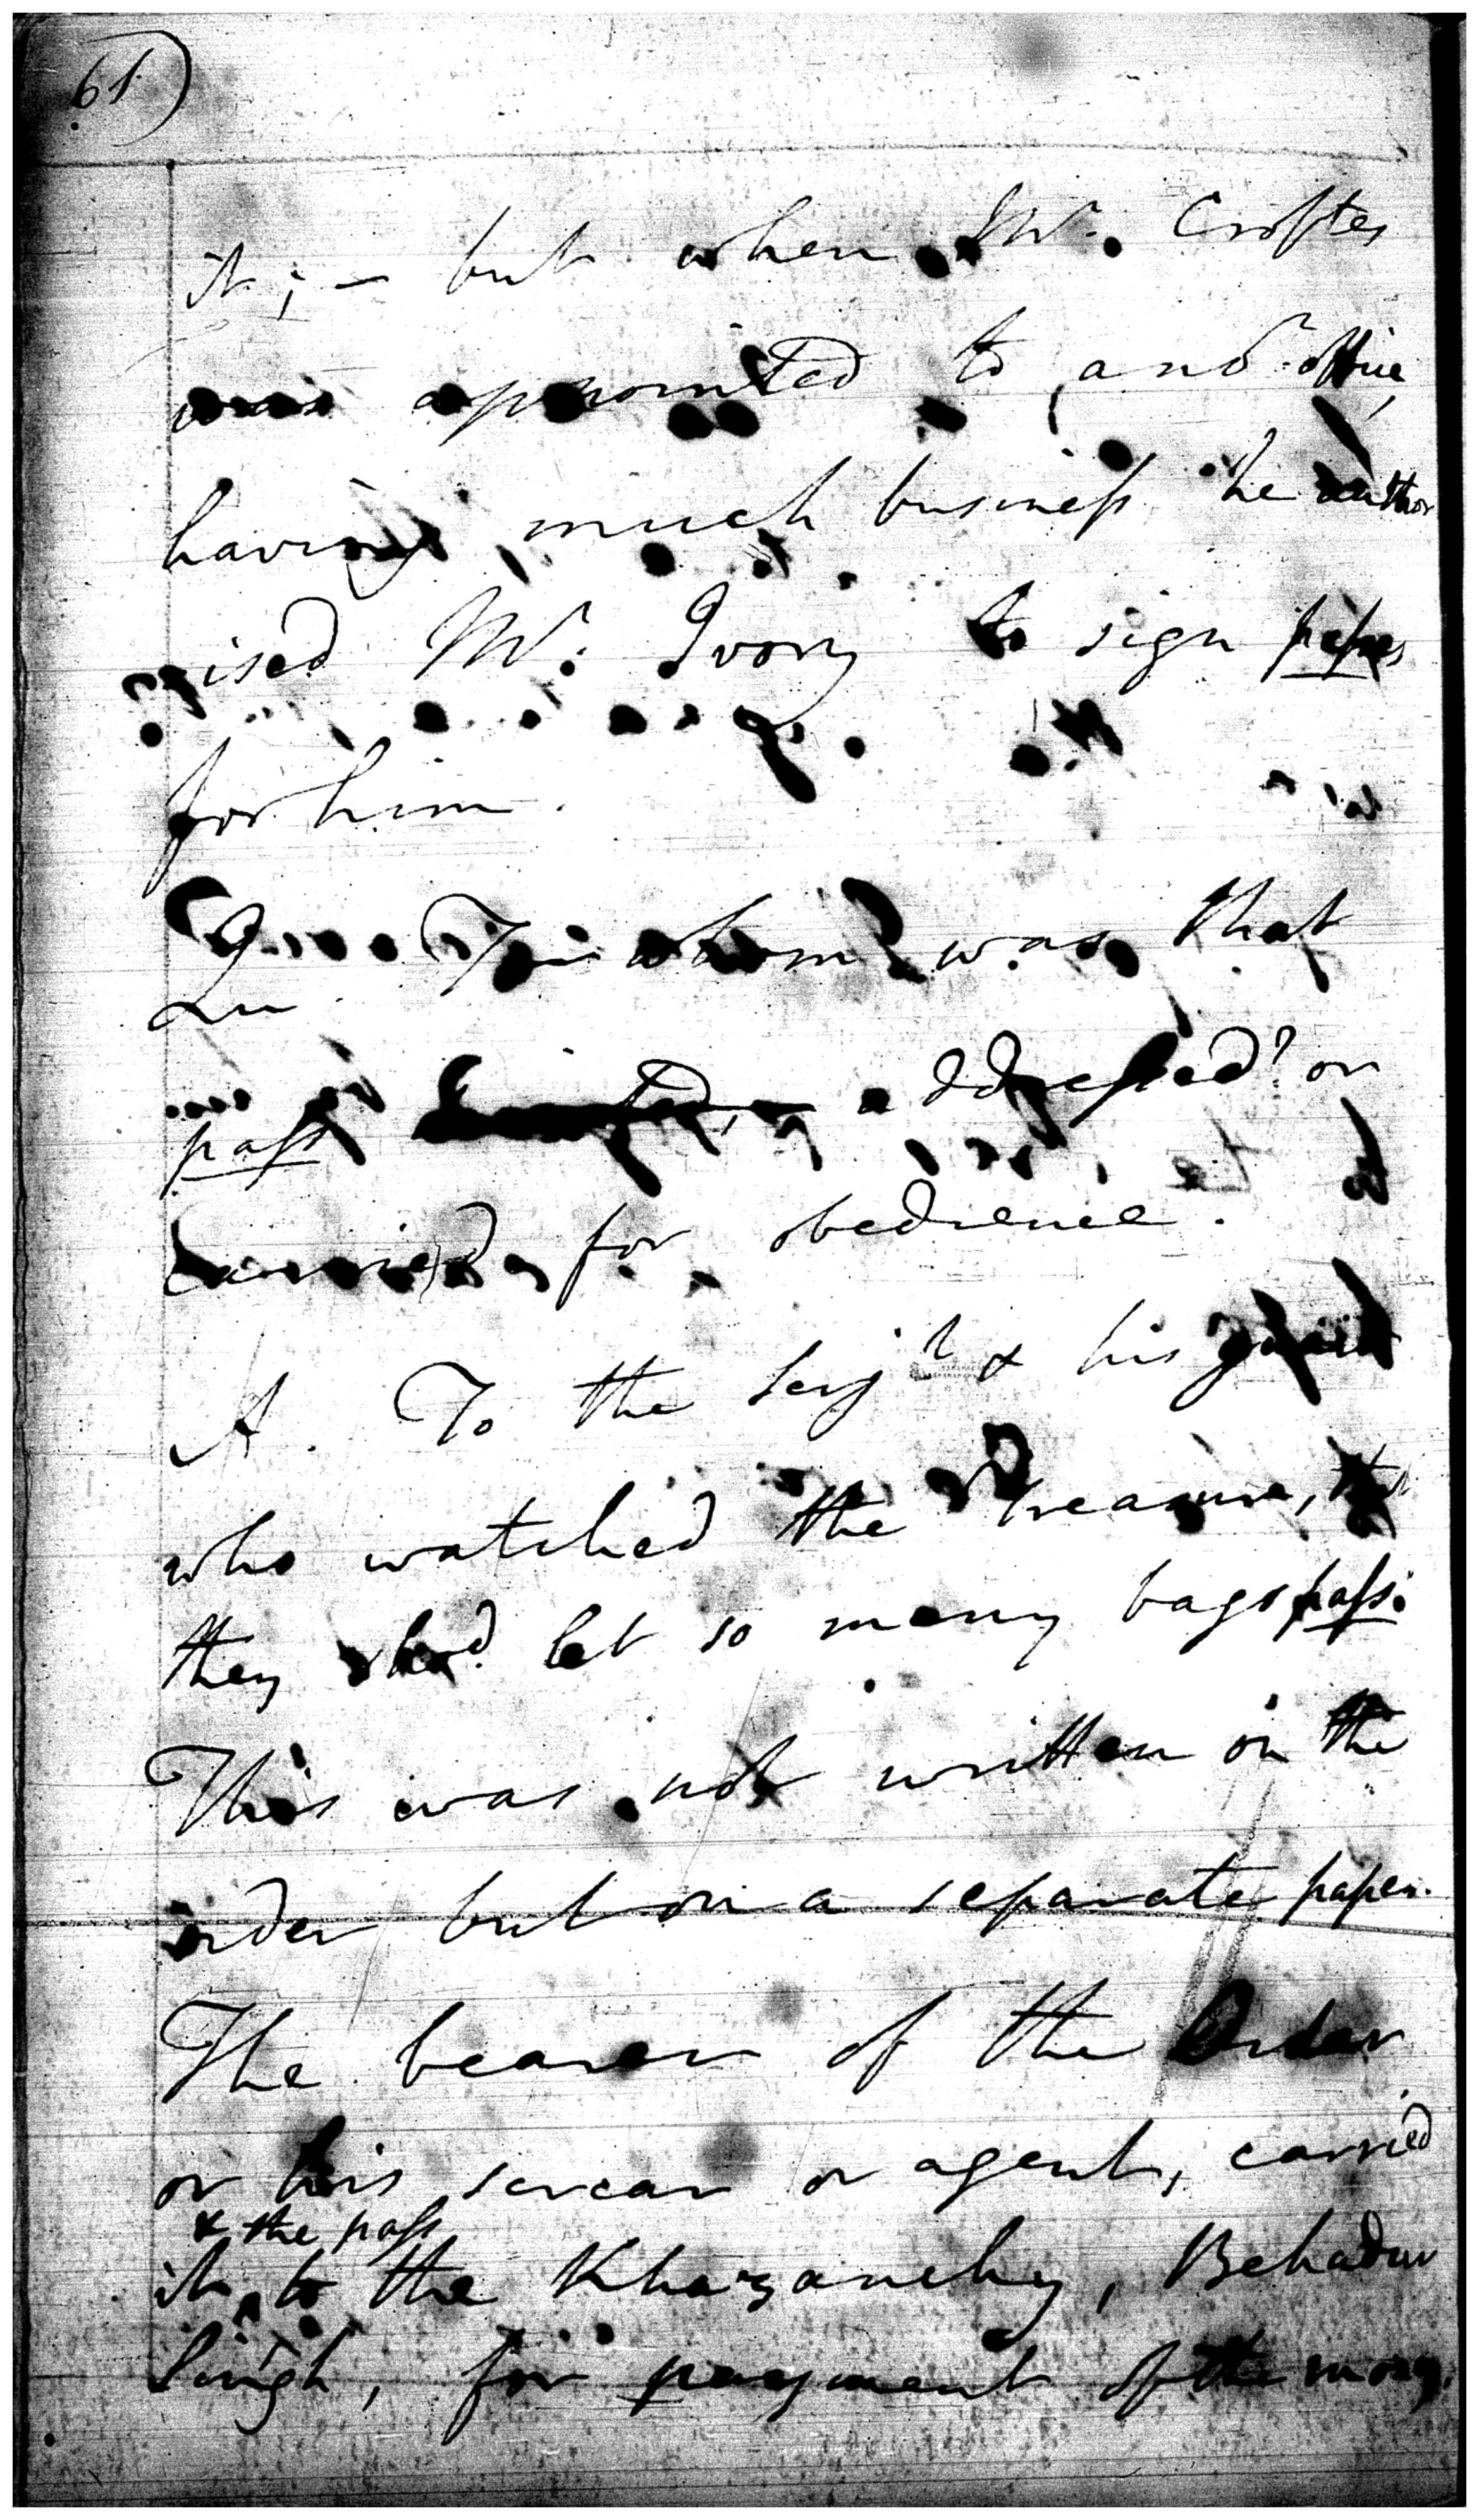 61)
it; – but when Mr. Croftes
was appointed to anor. office,
having much business he author
ised Mr. Ivory to sign passes
for him.
Qu. To whom was that
pass addressed? or
carried for obedience.
A. To the serjt & his guard
who watched the treasure, that
they shod. let so many bags pass.
This was not written on the
order but on a separate paper.
The bearer of the Order
or his sircar or agent, carried
& the pass
it to the Khazanchy, Behadur
Singh, for payment of the money.